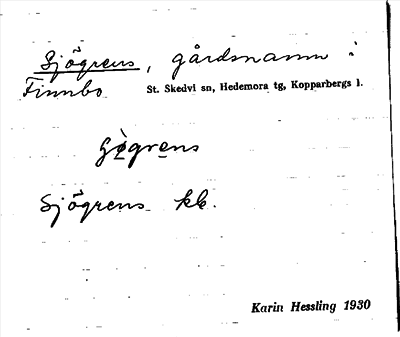 Sjögrens, gårdsnamn i
Finnbo St. Skedvi sn, Hedemora tg, Kopparbergs l.
Sjögrens kb.
Karin Hessling 1930